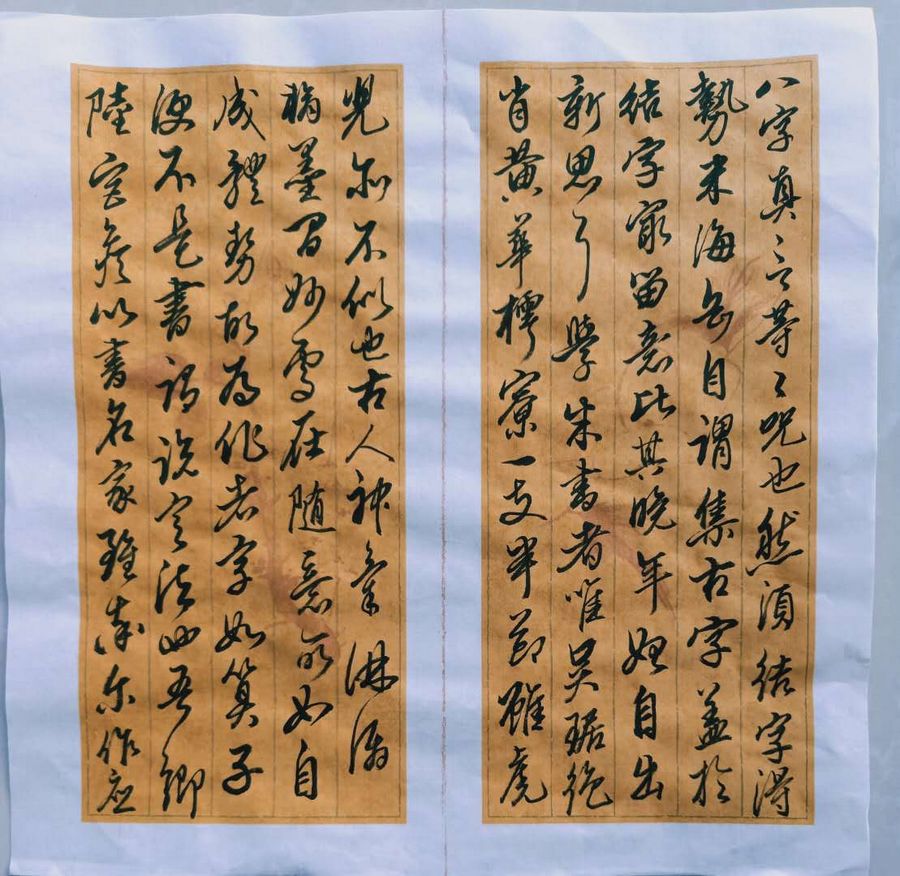 八字真言等々咒也然須结字得
勢米海岳自謂集古字盖於
结字最留意比其晚年始自出
新思耳學米書者唯吳琚絶
肖黄華樗寮一支半節雖虎
兒亦不似也古人神氣淋漓
翰墨間妙處在随意所如自
成體勢故為作者字如算子
便不是書謂說定法也吾鄉
陸宫詹以書名家雖率尔作應